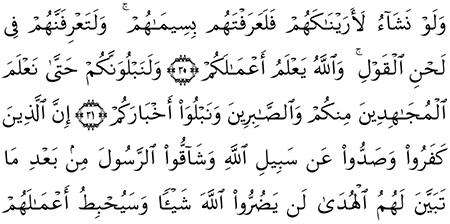 وَلَوْ نَشَآءُ لَأَرَيْنَـٰكَهُمْ فَلَعَرَفْتَهُم بِسِيمَـٰهُمْ ۚ وَلَتَعْرِفَنَّهُمْ فِى
لَحْنِ ٱلْقَوْلِ ۚ وَٱللَّهُ يَعْلَمُ أَعْمَـٰلَكُمْ ﴿٣٠﴾ وَلَنَبْلُوَنَّكُمْ حَتَّىٰ نَعْلَمَ
ٱلْمُجَـٰهِدِينَ مِنكُمْ وَٱلصَّـٰبِرِينَ وَنَبْلُوَا۟ أَخْبَارَكُمْ ﴿٣١﴾ إِنَّ ٱلَّذِينَ
كَفَرُوا۟ وَصَدُّوا۟ عَن سَبِيلِ ٱللَّهِ وَشَآقُّوا۟ ٱلرَّسُولَ مِنۢ بَعْدِ مَا
تَبَيَّنَ لَهُمُ ٱلْهُدَىٰ لَن يَضُرُّوا۟ ٱللَّهَ شَيْـًٔا وَسَيُحْبِطُ أَعْمَـٰلَهُمْ